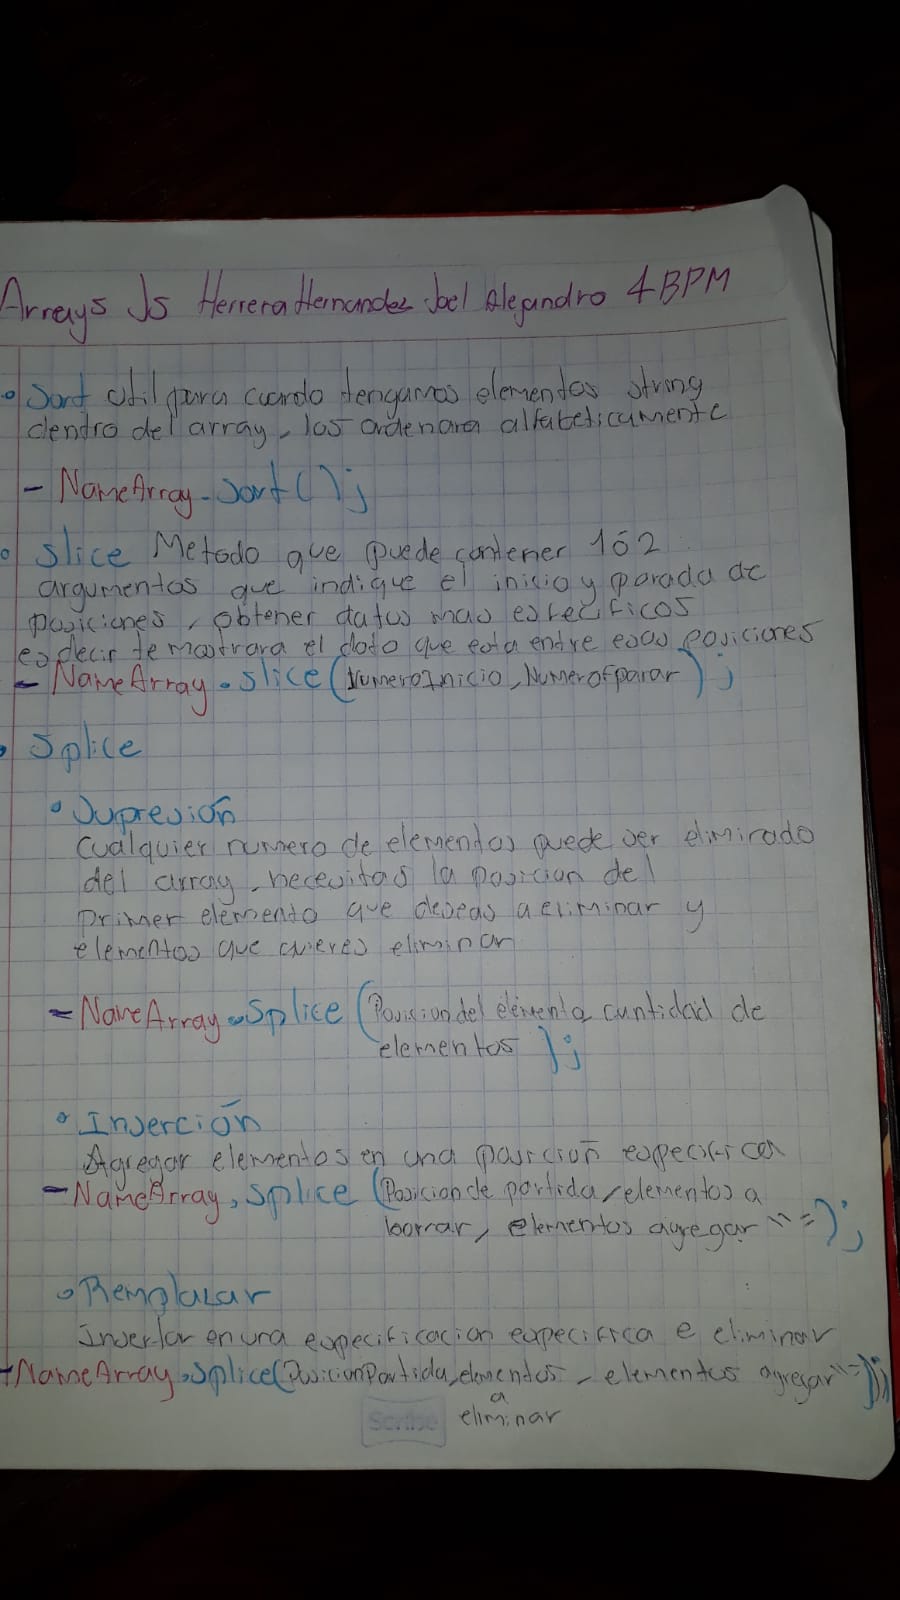 Arrays Js Herrera Hernandez Joel Alejandro 4BPM
Sort util para cuando tengamos elementos string
dentro del array, los ordenara alfabeticamente
- NameArray.Sort();
Slice Metodo que puede contener 1ó2
argumentos que indique el inicio y parada de
posiciones, obtener datos mas especificos
es decir te mostrara el dato que esta entre esas posiciones
- NameArray.slice(NumeroInicio, NumeroParar);
Splice
Supresion
Cualquier numero de elementos puede ser eliminado
del array, necesitas la posicion del
primer elemento que deseas a eliminar y
elementos que quieres eliminar
- NameArray.Splice (Posicion del elemento, cantidad de
elementos );
Inserción
Agregar elementos en una posicion especifica
- NameArray, Splice (Posicion de partida, elementos a
borrar, elementos agregar ""=);
Remplasar
Insertar en una especificacion especifica e eliminar
- NameArray.Splice(PosicionPartida, elementos, elementos agregar ""=);
a
eliminar
Scribe